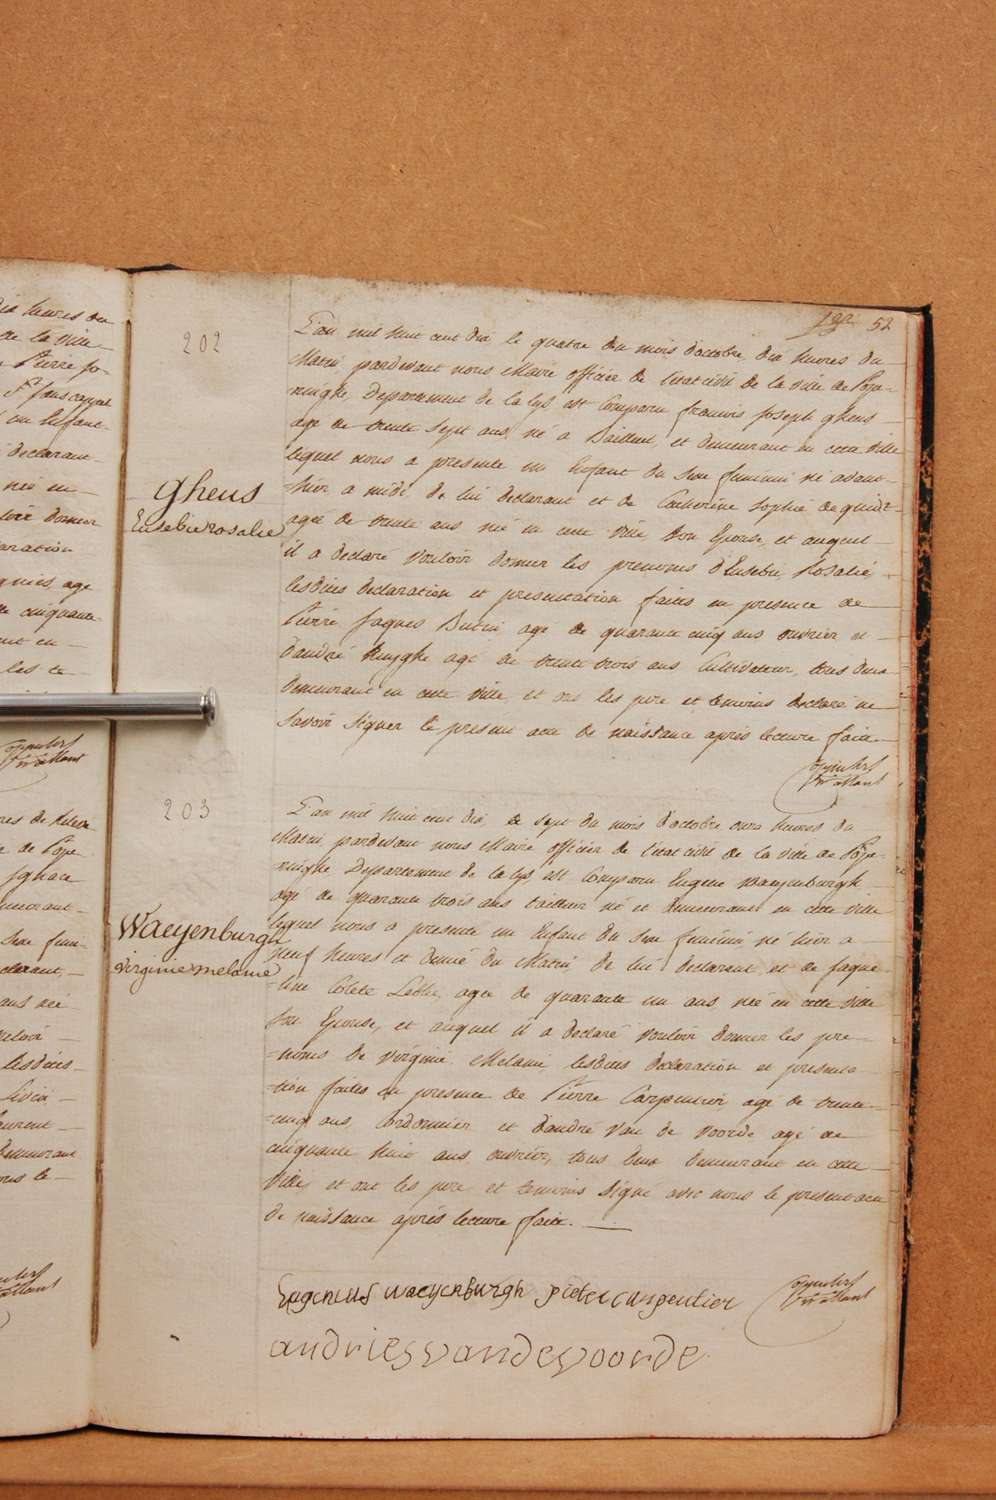 dix heures du
de la ville
Pierre jo-
un Enfant
declarant
né en
donner
aration
age
cinquante
ent en
les te
202
52
L'an mil huit cent dix le quatre du mois d'octobre dix heures du
Matin pardevant nous Maire officier de l'etat civil de la ville de Pope-
ringhe, Departement de la lys est Comparu francois Joseph gheus
age de trente sept ans, né a Bailleul, et demeurant en cette ville
lequel nous a presenté un Enfant du sexe feminin né avant
-hier a midi de lui declarant et de Catherine Sophie de quidt
gheus
Eusebie rosalie
agée de trente ans née en cette ville son Epouse, et auquel
il a declaré vouloir donner les prenoms d'Eusebie, Rosalie
lesdites declaration et presentation faites en presence de
Pierre Jaques Butin age de quarante cinq ans ouvrier et
d'andré Huyghe age de trente trois ans Cultivateur, tous deux
demeurant en cette ville, et ont les pere et temoins declaré ne
savoir signer le present acte de naissance après lecture faite
203
L'an mil huit cent dix le sept du mois d'octobre onze heures du
Matin pardevant nous Maire officier de l'etat civil de la ville de Pope-
ringhe Departement de la lys est Comparu Eugene Waeyenburgh
agé de quarante trois ans tailleur né et demeurant en cette ville
lequel nous a presenté un Enfant du sexe feminin né hier a
Waeyenburgh
virginie melanie
neuf heures et demie du Matin, de lui declarant et de Jaque-
-line Colete Leclu, agée de quarante un ans, née en cette ville
son Epouse, et auquel il a declaré vouloir donner les pre-
-noms de Virginie Melanie, lesdites declaration et presenta-
-tion faites en presence de Pierre Carpentier agé de trente
-cinq ans, Cordonnier et d'andré Van de Voorde agé de
cinquante huit ans ouvrier, tous deux demeurant en cette
ville, et ont les pere et temoins signé avec nous le present acte
de naissance après lecture faite.
Eugenius waeyenburgh pieter carpentier
andries vande voorde